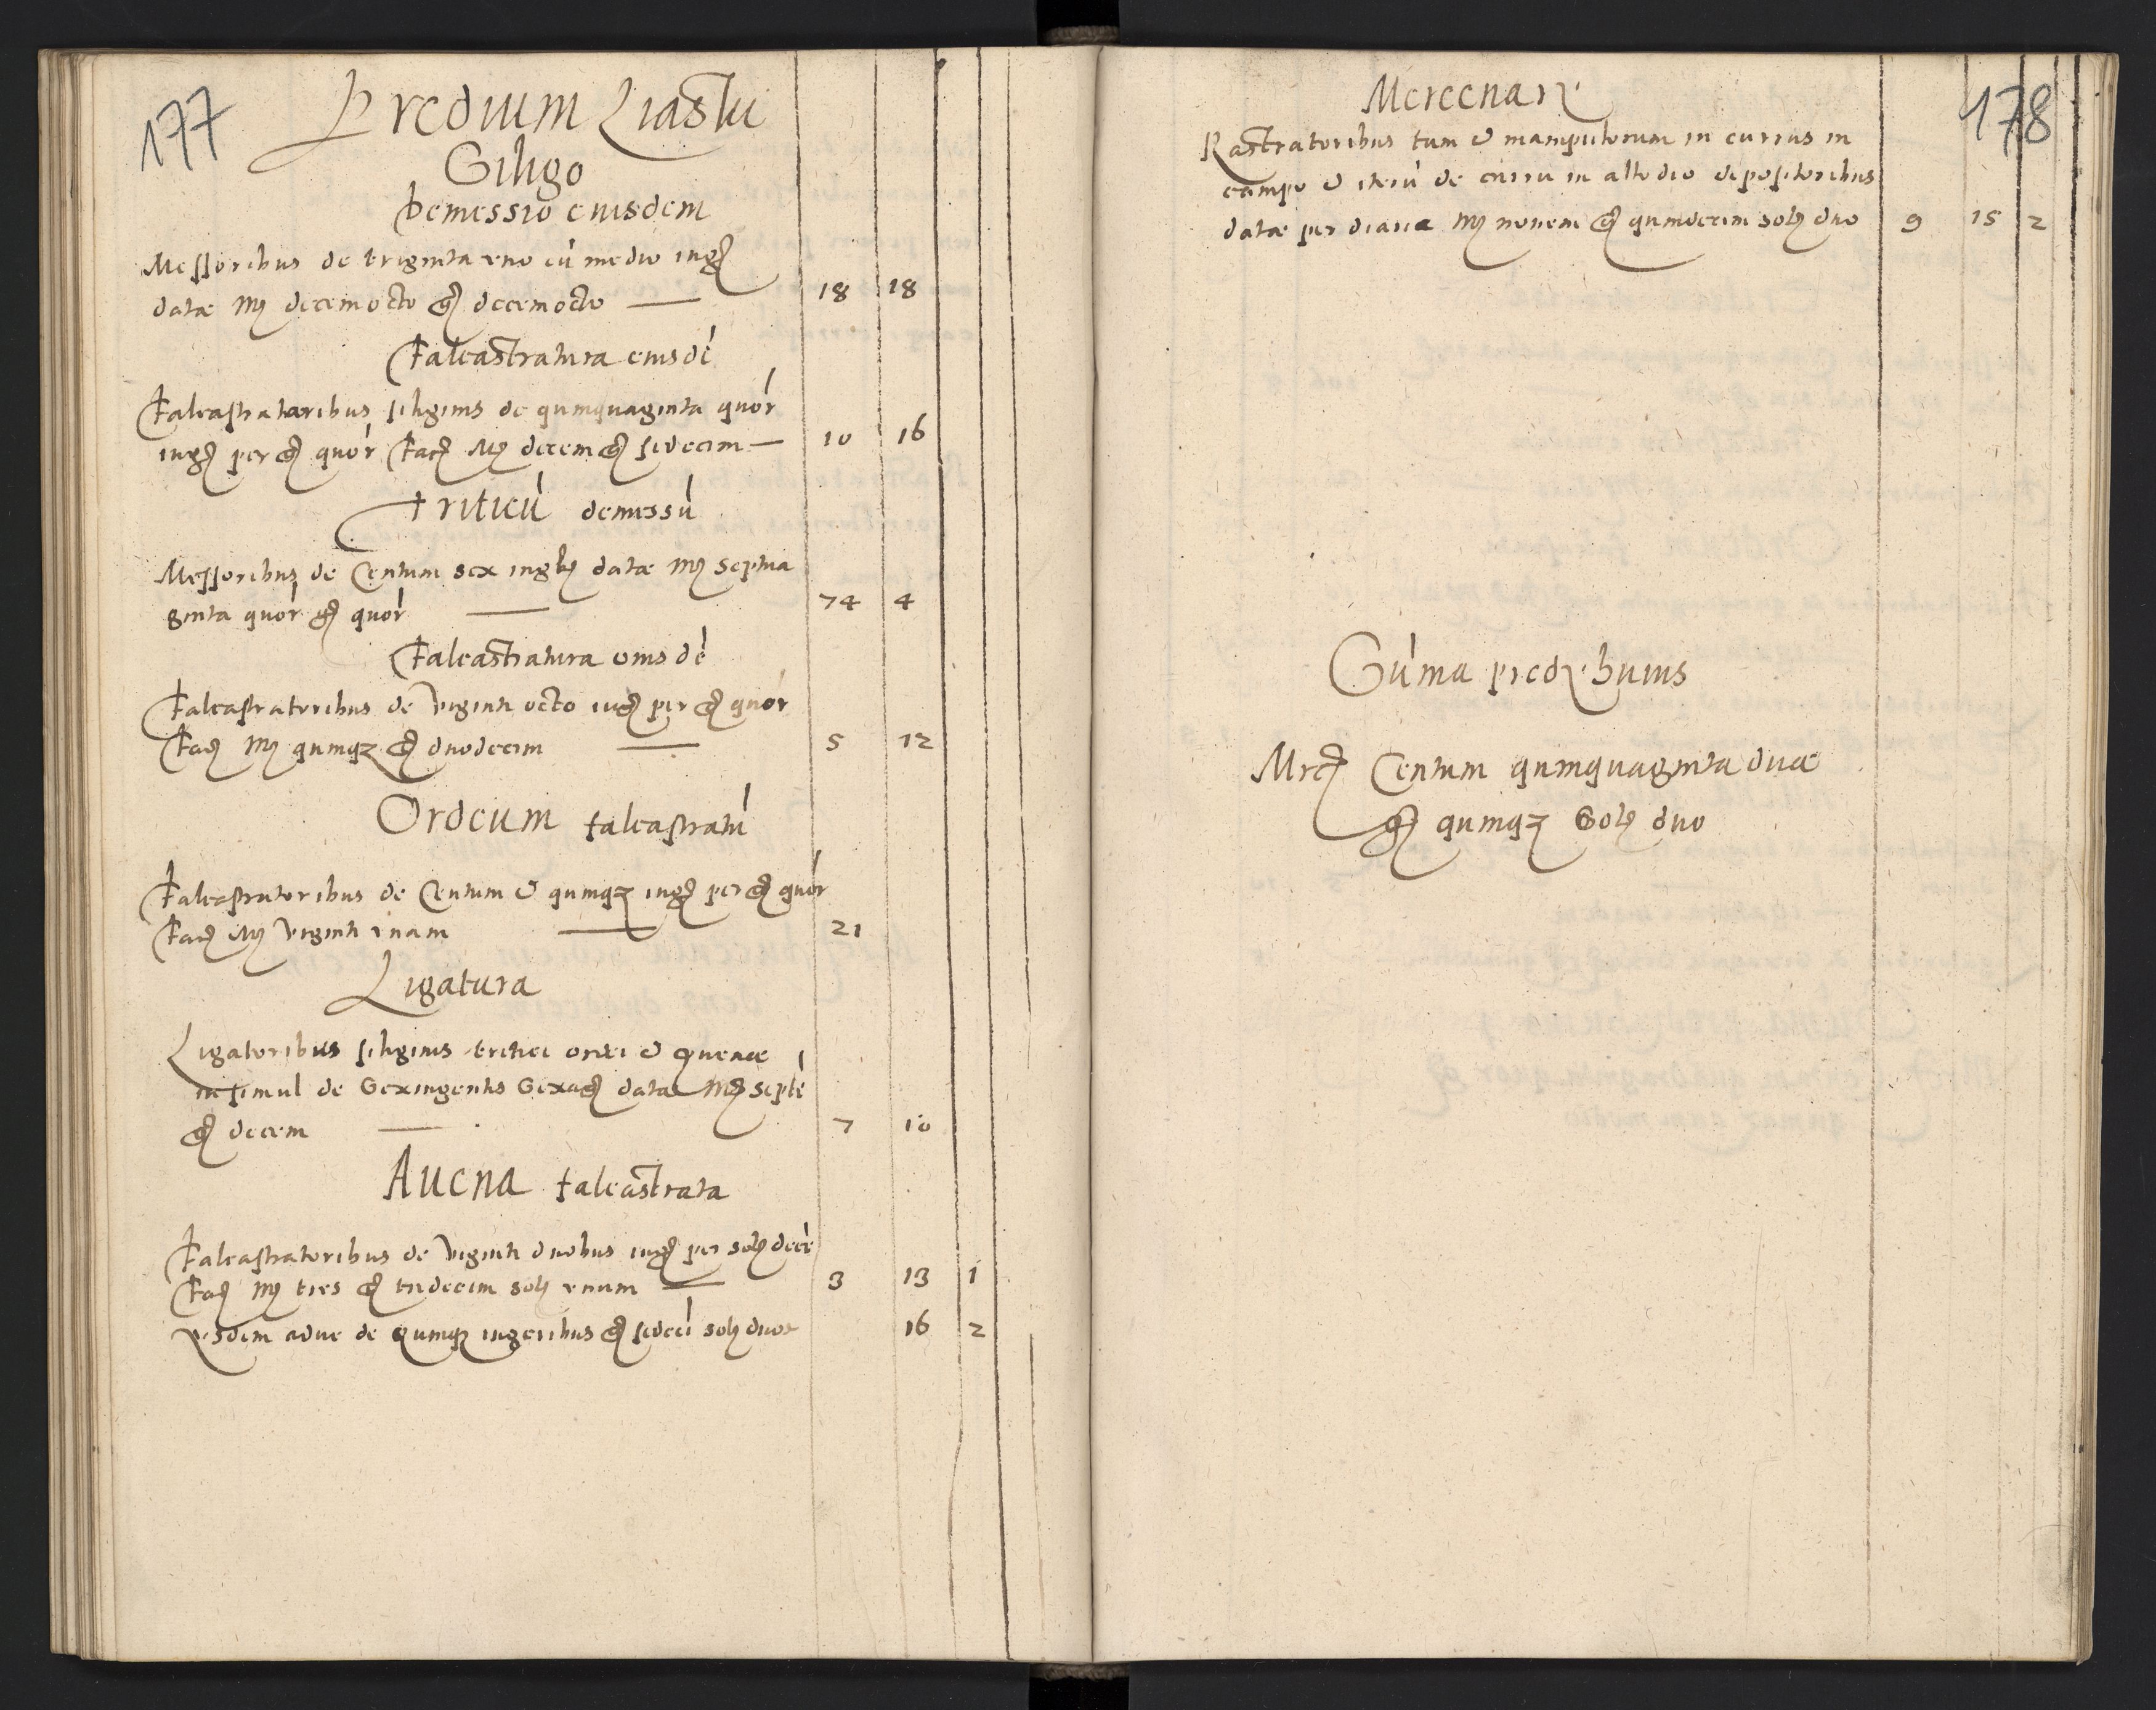 177
Predium Liasky
Siligo
Demessio eiusdem
Messoribus de triginta vno cū medio iug
datæ M decemocto g decemocto — 18 18
Falcastratura eiusdē
Falcastratoribus siliginis de quinquaginta quor
iug per g quor fac M decem g sedecim — 10 16
Triticū demessū
Messoribus de Centum sex iug datæ M septua
ginta quor g quor — 74 4
Falcastratura eiusdē
Falcastratoribus de Viginti octo iug per g quor
fac M quinq g duodecim — 5 12
Ordeum falcastratū
Falcastratoribus de Centum & quinq iug per g quor
fac M Viginti vnam — 21
Ligatura
Ligatoribus siliginis tritici ordei & Auenæ
insimul de Sexingentis Sexag datæ M septē
g decem — 7 10
Auena falcastrata
Falcastratoribus de Viginti duobus iug per sol decē
fac M tres g tridecim sol vnum — 3 13 1
eisdem de quinq iugeribus g sedecī sol duos 16 2
Mercenar
178
Rastratoribus tum & manipulorum in currus in
campo & iterū de curru in allodio depositoribus
datæ per M nouem g quindecim sol duo 9 15 2
Sūma pred huius
Mrc Centum quinquaginta duæ
g quinq Sol duo